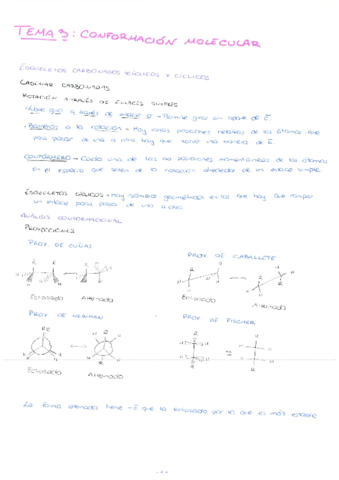 TEMA 3: CONFORMACIÓN MOLECULAR
ESQUELETOS CARBONADOS ACÍCLICOS Y CÍCLICOS
CADENAS CARBONADAS
ROTACIÓN A TRAVÉS DE ENLACES SIMPLES
Libre giro a través de enlace σ → Permite girar sin aporte de E.
Barreras a la rotación → Hay varias posiciones relativas de los átomos que
para pasar de una a otra hay que vencer una barrera de E.
CONFÓRMERO → Cada una de las posiciones momentáneas de los átomos
en el espacio que salen de la rotación alrededor de un enlace simple.
ESQUELETOS CÍCLICOS → Hay isómeros geométricos en los que hay que romper
un enlace para pasar de uno a otro
ANÁLISIS CONFORMACIONAL
PROYECCIONES
PROY. DE CUÑAS
PROY. DE CABALLETE
Eclipsado Alternado
Eclipsado Alternado
PROY. DE NEWMAN
PROY. DE FISCHER
Eclipsado Alternado
La forma alternada tiene -E que la eclipsada, por lo que es más estable